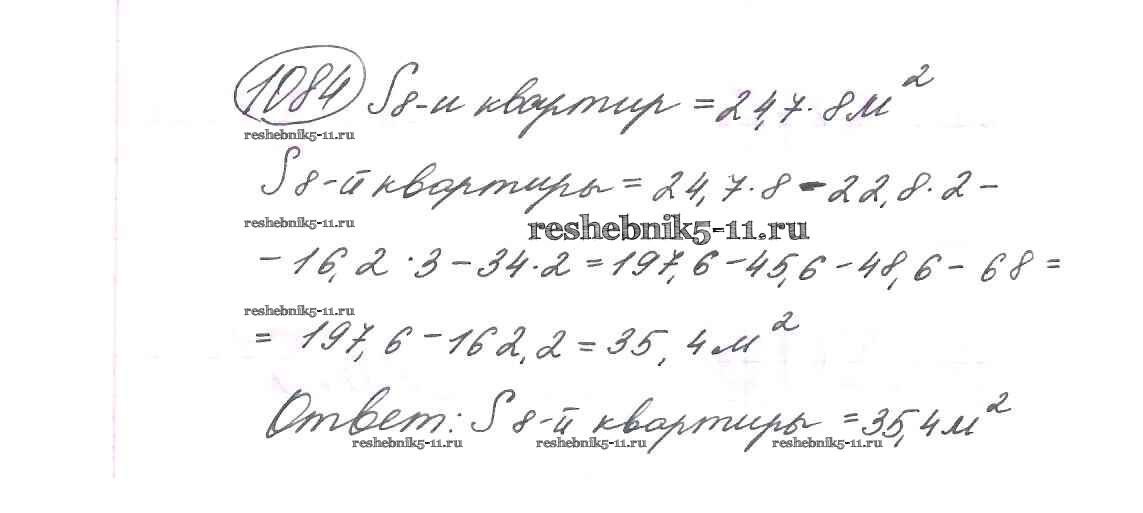 1084 S 8-и квартир = 24,7·8 м²
reshebnik5-11.ru
S 8-й квартиры = 24,7·8 - 22,8·2 -
reshebnik5-11.ru reshebnik5-11.ru
- 16,2·3 - 34·2 = 197,6 - 45,6 - 48,6 - 68 =
reshebnik5-11.ru
= 197,6 - 162,2 = 35,4 м²
Ответ: S 8-й квартиры = 35,4 м²
reshebnik5-11.ru reshebnik5-11.ru reshebnik5-11.ru